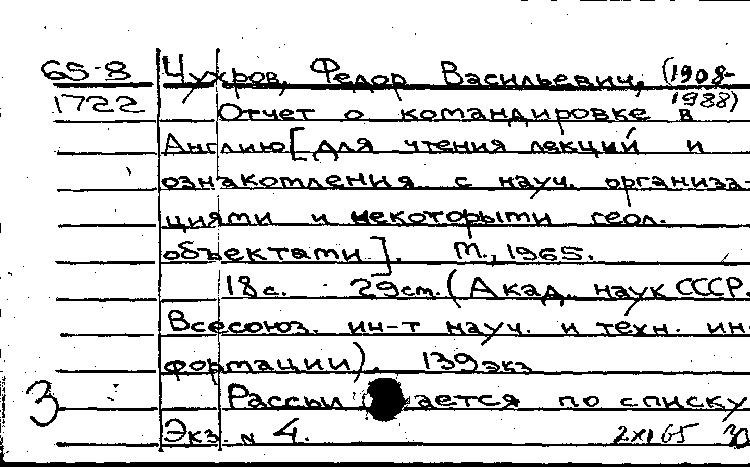 65-8 Чухров, Федор Васильевич, (1908-
1722 1988)
Отчет о командировке в
Англию [для чтения лекций и
ознакомления с науч. организа-
циями и некоторыми геол.
объектами]. М., 1965.
18 с. 29 см. (Акад. наук СССР.
Всесоюз. ин-т науч. и техн. ин-
формации). 139 экз
3 Рассы ается по списку
Экз. № 4. 2XI65 30